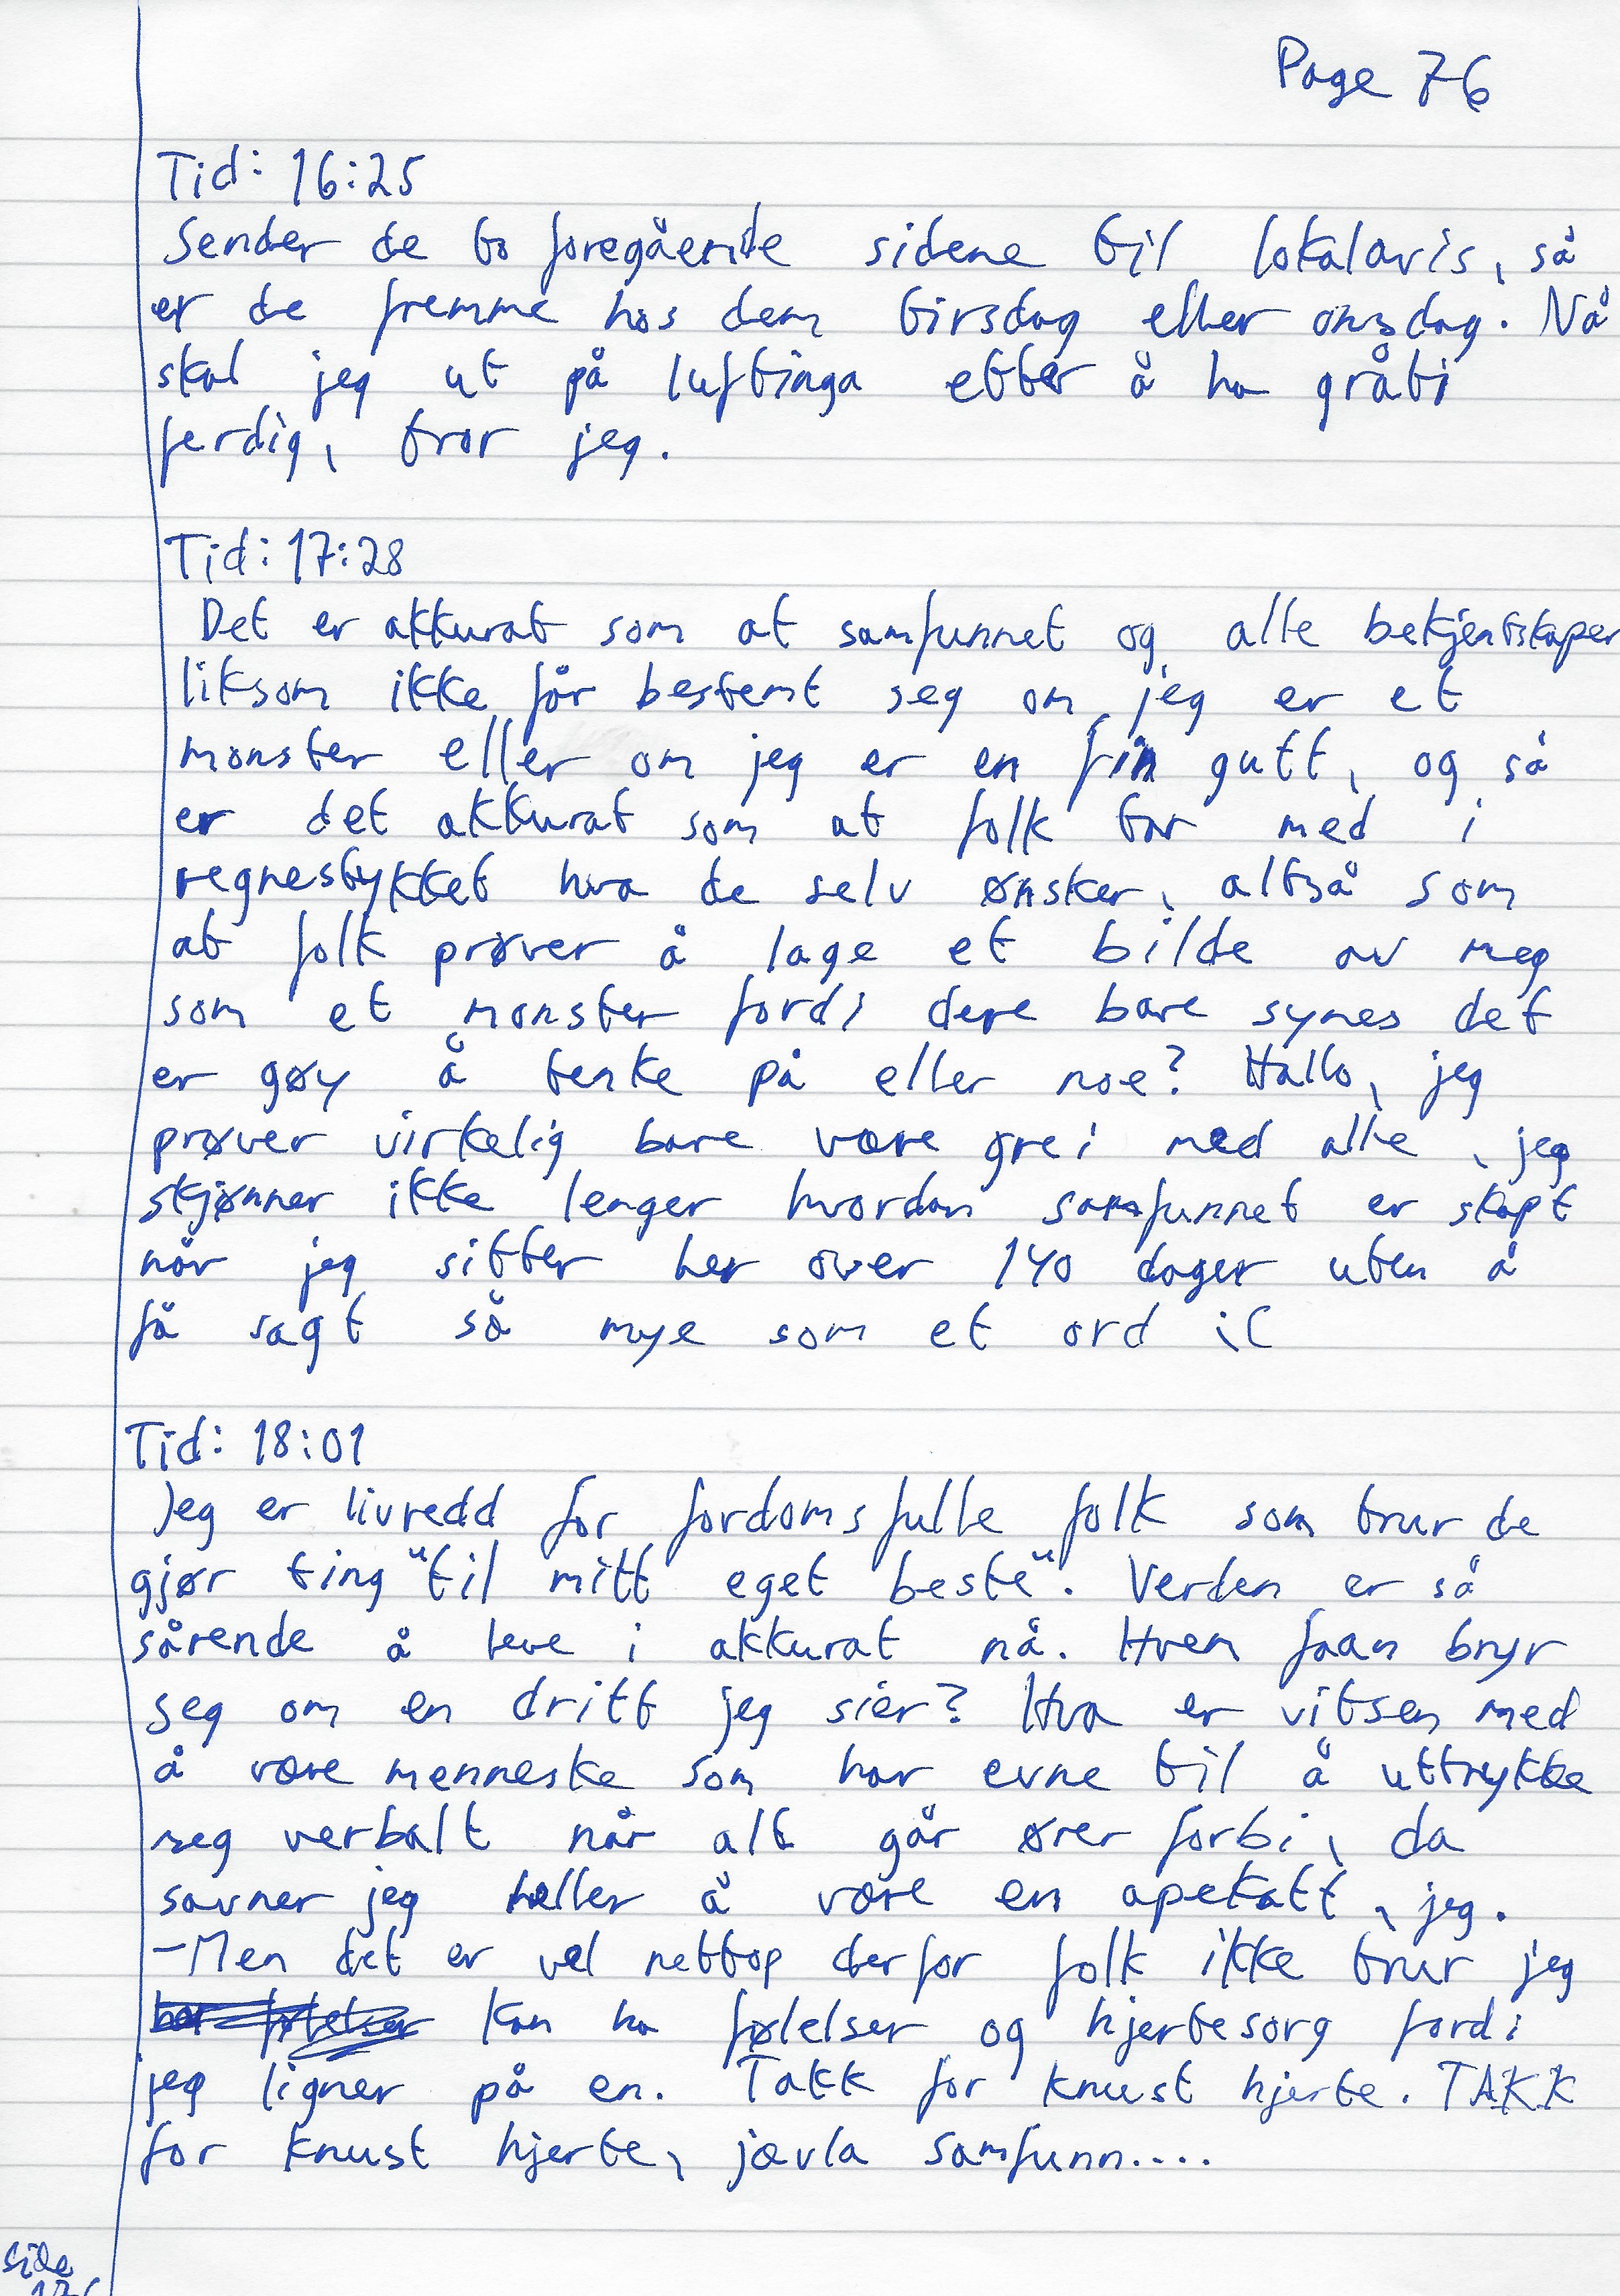 Page 76
Tid: 16:25
Sender de to foregående sidene til lokalavis, så
er de fremme hos dem tirsdag eller onsdag. Nå
skal jeg ut på luftinga etter å ha gråti
ferdig, tror jeg.
Tid: 17:28
Det er akkurat som at samfunnet og alle bekjentskaper
liksom ikke får bestemt seg om jeg er et
monster eller om jeg er en fin gutt, og så
er det akkurat som at folk tar med i
regnestykket hva de selv ønsker, altså som
at folk prøver å lage et bilde av meg
som et monster fordi dere bare synes det
er gøy å tenke på eller noe? Hallo, jeg
prøver virkelig bare være grei med alle, jeg
skjønner ikke lenger hvordan samfunnet er skapt
når jeg sitter her over 140 dager uten å
få sagt så mye som et ord :(
Tid: 18:01
Jeg er livredd for fordomsfulle folk som trur de
gjør ting "til mitt eget beste". Verden er så
sårende å leve i akkurat nå. Hvem faan bryr
seg om en dritt jeg sier? Hva er vitsen med
å være menneske som har evne til å uttrykke
seg verbalt når alt går ører forbi, da
savner jeg heller å være en apekatt, jeg.
-Men det er vel nettop derfor folk ikke trur jeg
har følelser kan ha følelser og hjertesorg fordi
jeg ligner på en. Takk for knust hjerte. TAKK
for knust hjerte, jævla samfunn....
side